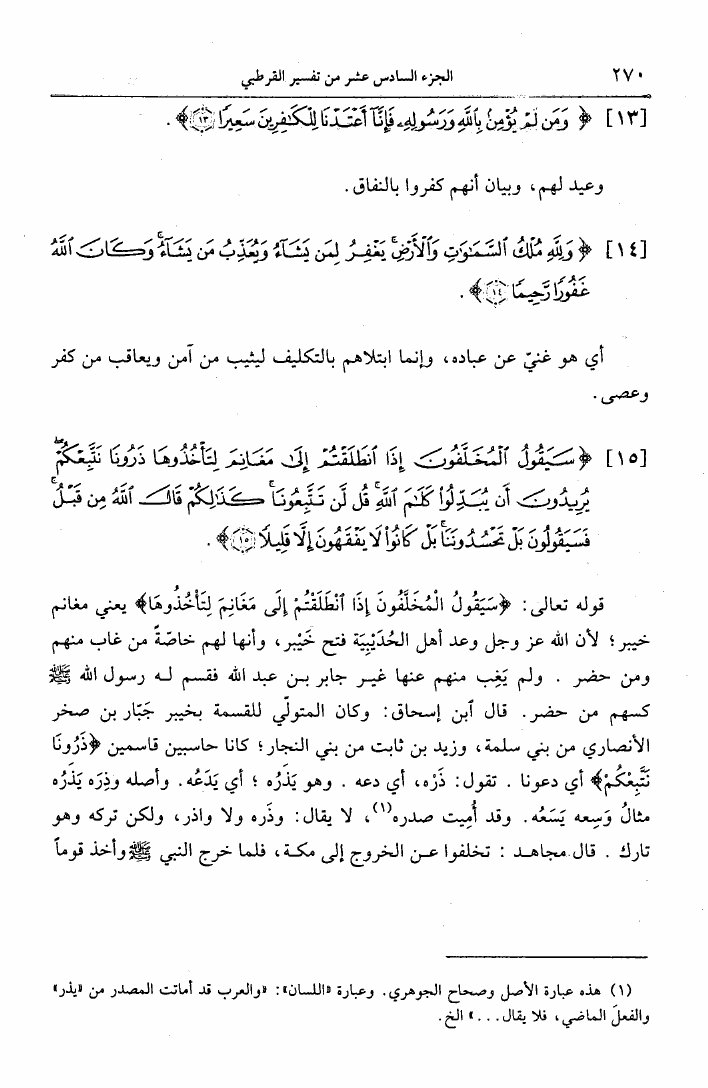 ٢٧٠ الجزء السادس عشر من تفسير القرطبي
[١٣] ﴿ وَمَن لَّمْ يُؤْمِنۢ بِٱللَّهِ وَرَسُولِهِۦ فَإِنَّآ أَعْتَدْنَا لِلْكَٰفِرِينَ سَعِيرًا ١٣ ﴾ .
وعيد لهم، وبيان أنهم كفروا بالنفاق.
[١٤] ﴿ وَلِلَّهِ مُلْكُ ٱلسَّمَٰوَٰتِ وَٱلْأَرْضِ ۚ يَغْفِرُ لِمَن يَشَآءُ وَيُعَذِّبُ مَن يَشَآءُ ۚ وَكَانَ ٱللَّهُ
غَفُورًا رَّحِيمًا ١٤ ﴾ .
أي هو غنيّ عن عباده، وإنما ابتلاهم بالتكليف ليثيب من آمن ويعاقب من كفر
وعصى.
[١٥] ﴿ سَيَقُولُ ٱلْمُخَلَّفُونَ إِذَا ٱنطَلَقْتُمْ إِلَىٰ مَغَانِمَ لِتَأْخُذُوهَا ذَرُونَا نَتَّبِعْكُمْ ۖ
يُرِيدُونَ أَن يُبَدِّلُوا۟ كَلَٰمَ ٱللَّهِ ۚ قُل لَّن تَتَّبِعُونَا ۚ كَذَٰلِكُمْ قَالَ ٱللَّهُ مِن قَبْلُ ۖ
فَسَيَقُولُونَ بَلْ تَحْسُدُونَنَا ۚ بَلْ كَانُوا۟ لَا يَفْقَهُونَ إِلَّا قَلِيلًا ١٥ ﴾ .
قوله تعالى: ﴿سَيَقُولُ الْمُخَلَّفُونَ إِذَا ٱنْطَلَقْتُمْ إِلَى مَغَانِمَ لِتَأْخُذُوهَا﴾ يعني مغانم
خيبر؛ لأن الله عز وجل وعد أهل الحُدَيْبِيَة فتح خَيْبر، وأنها لهم خاصّةً من غاب منهم
ومن حضر . ولم يَغِب منهم عنها غيـر جابر بـن عبد الله فقسم لـه رسول الله ﷺ
كسهم من حضر. قال ٱبن إسحاق: وكان المتولّي للقسمة بخيبر جَبّار بن صخر
الأنصاري من بني سلمة، وزيد بن ثابت من بني النجار؛ كانا حاسبين قاسمين ﴿ذَرُونَا
نَتَّبِعْكُمْ﴾ أي دعونا . تقول: ذَرْه، أي دعه . وهو يَذَرُه ؛ أي يَدَعُه. وأصله وذِرَه يَذَرُه
مثالُ وَسِعه يَسَعُه. وقد أُمِيت صدره(١)، لا يقال: وذَره ولا واذر، ولكن تركه وهو
تارك . قال مجاهـد : تخلفوا عـن الخروج إلى مكـة، فلما خرج النبي ﷺ وأخذ قوماً
(١) هذه عبارة الأصل وصحاح الجوهري. وعبارة «اللسان»: «والعرب قد أماتت المصدر من «يذر»
والفعلَ الماضي، فلا يقال...» الخ.